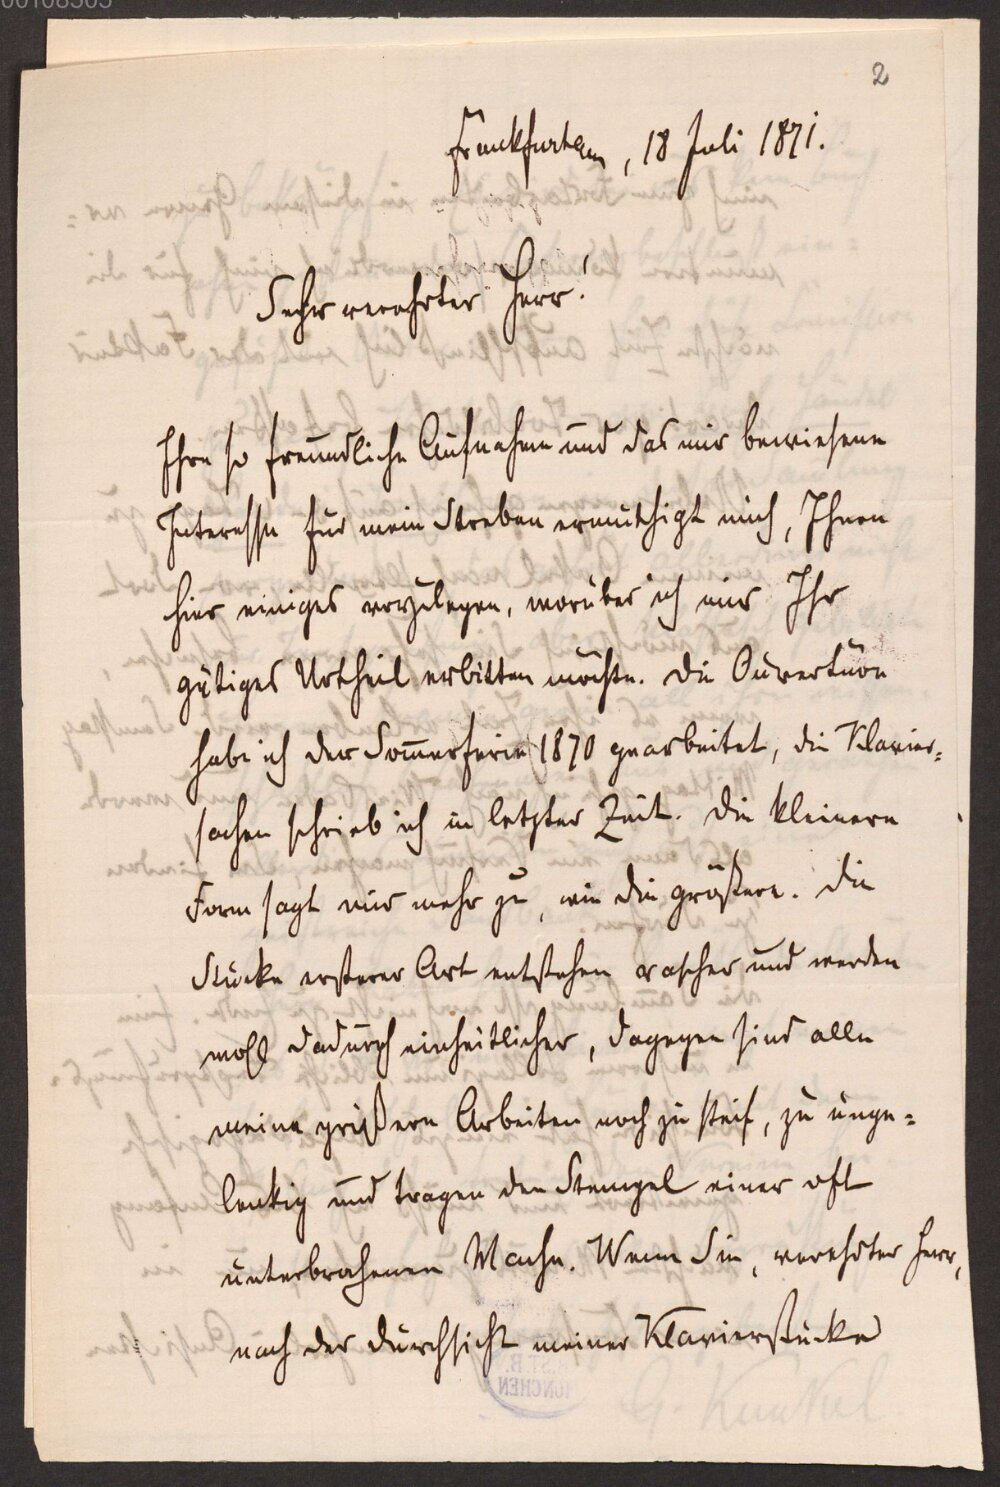 2
Frankfurt a/m, 18 Juli 1871.
Sehr verehrter Herr!
Ihre so freundliche Aufnahme und das mir bewiesene
Interesse für mein Streben ermuthigt mich, Ihnen
hier einiges vorzulegen, worüber ich mir Ihr
gütiges Urtheil erbitten möchte. Die Ouverture
habe ich der Sommerferien 1870 gearbeitet, die Klavier-
sachen schrieb ich in letzter Zeit. Die kleinere
Form sagt mir mehr zu, wie die größere. Die
Stücke ersterer Art entstehen rascher und werden
wohl dadurch einheitlicher, dagegen sind alle
meine größern Arbeiten noch zu steif, zu unge-
lenkig und tragen den Stempel einer oft
unterbrochenen Mache. Wenn Sie, verehrter Herr,
nach der Durchsicht meiner Klavierstücke